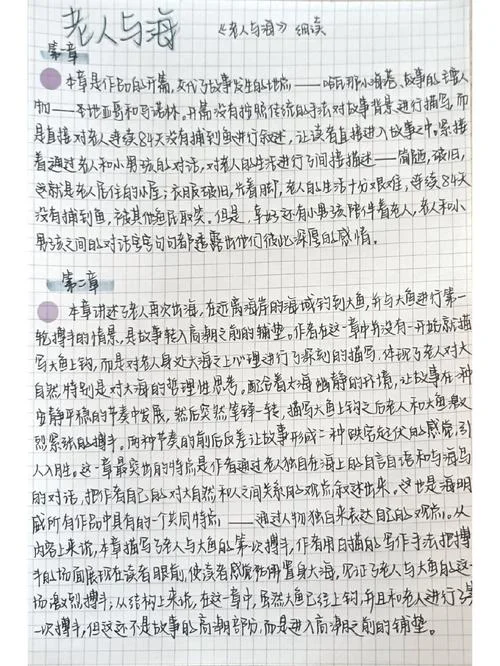 老人与海 《老人与海》细读
第一章
本章是作品的开篇,交代了故事发生的地点——哈瓦那小海港、故事的主要人
物——圣地亚哥和马诺林。开篇没有按照传统的手法对故事背景进行描写,而
是直接对老人连续84天没有捕到鱼进行叙述,让读者直接进入故事之中。紧接
着通过老人和小男孩的对话,对老人的生活进行了间接描述——简陋,破旧,
这就是老人居住的小屋;衣服破旧,光着脚,老人的生活十分艰难,连续84天
没有捕到鱼,被其他渔民取笑。但是,幸好还有小男孩陪伴着老人,老人和小
男孩之间的对话字字句句都透露出他们彼此深厚的感情。
第二章
本章讲述了老人再次出海,在远离海岸的海域钓到大鱼,并与大鱼进行第一
轮搏斗的情景,是故事转入高潮之前的铺垫。作者在这一章中并没有一开始就描
写大鱼上钩,而是对老人身处大海之上心理进行了深刻的描写,体现了老人对大
自然,特别是对大海的哲理性思考。配合着大海幽静的环境,让故事在一种
安静平稳的节奏中发展,然后突然笔锋一转,描写大鱼上钩之后老人和大鱼激
烈紧张的搏斗。两种节奏的前后反差让故事形成一种跌宕起伏的感觉,引
人入胜。这一章最突出的特点是作者通过老人独自在海上的自言自语和与海鸟
的对话,把作者自己的对大自然和人之间关系的观点叙述出来。这也是海明
威所有作品中具有的一个共同特点——通过人物独白来表达自己的观点。从
内容上来说,本章描写了老人与大鱼的第一次搏斗,作者用白描的写作手法把搏
斗的场面展现在读者眼前,使读者感觉置身大海,见证了老人与大鱼的这一
场激烈搏斗;从结构上来说,在这一章中,虽然大鱼已经上钩,并且和老人进行了第
一次搏斗,但这还不是故事的高潮部分,而是进入高潮之前的铺垫。